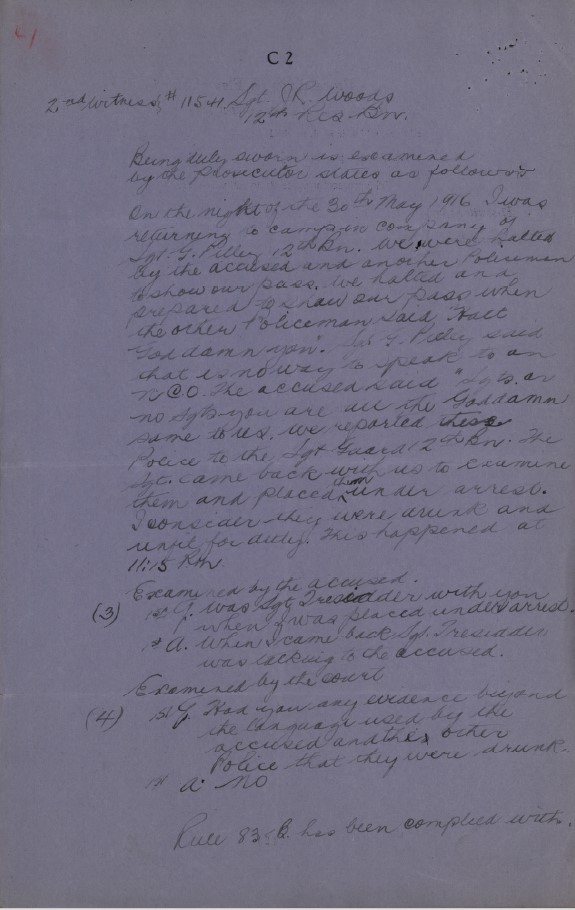 C 2
2nd Witness, # 11541. Sgt. J R. Woods
12th Res. Bn.
Being duly sworn is examined
by the Prosecutor states as follows:-
On the night of the 30th May 1916 I was
returning to camp in company of
Sgt. G. Pilley 12th Bn. We were halted
by the accused and another Policeman
to show our pass. We halted and
prepared to show our pass when
the other Policeman said "Halt
God damn you". Sgt G. Pilley said
that is no way to speak to an
N.C.O. The accused said "Sgts. or
no Sgts you are all the Goddamn
same to us. We reported these
Police to the Sgt Guard 12th Bn. The
Sgt. came back with us to examine
them and placed them under arrest.
I consider they were drunk and
unfit for duty. This happened at
11:15 P.M.
Examined by the accused.
(3) 1st Q. Was Sgt Tresidder with you
when I was placed under arrest.
1st A. When I came back Sgt. Tresidder
was talking to the accused.
Examined by the court
(4) 1st Q. Had you any evidence beyond
the language used by the
accused and the other
Police that they were drunk.
1st A: No
Rule 83-B. has been complied with.